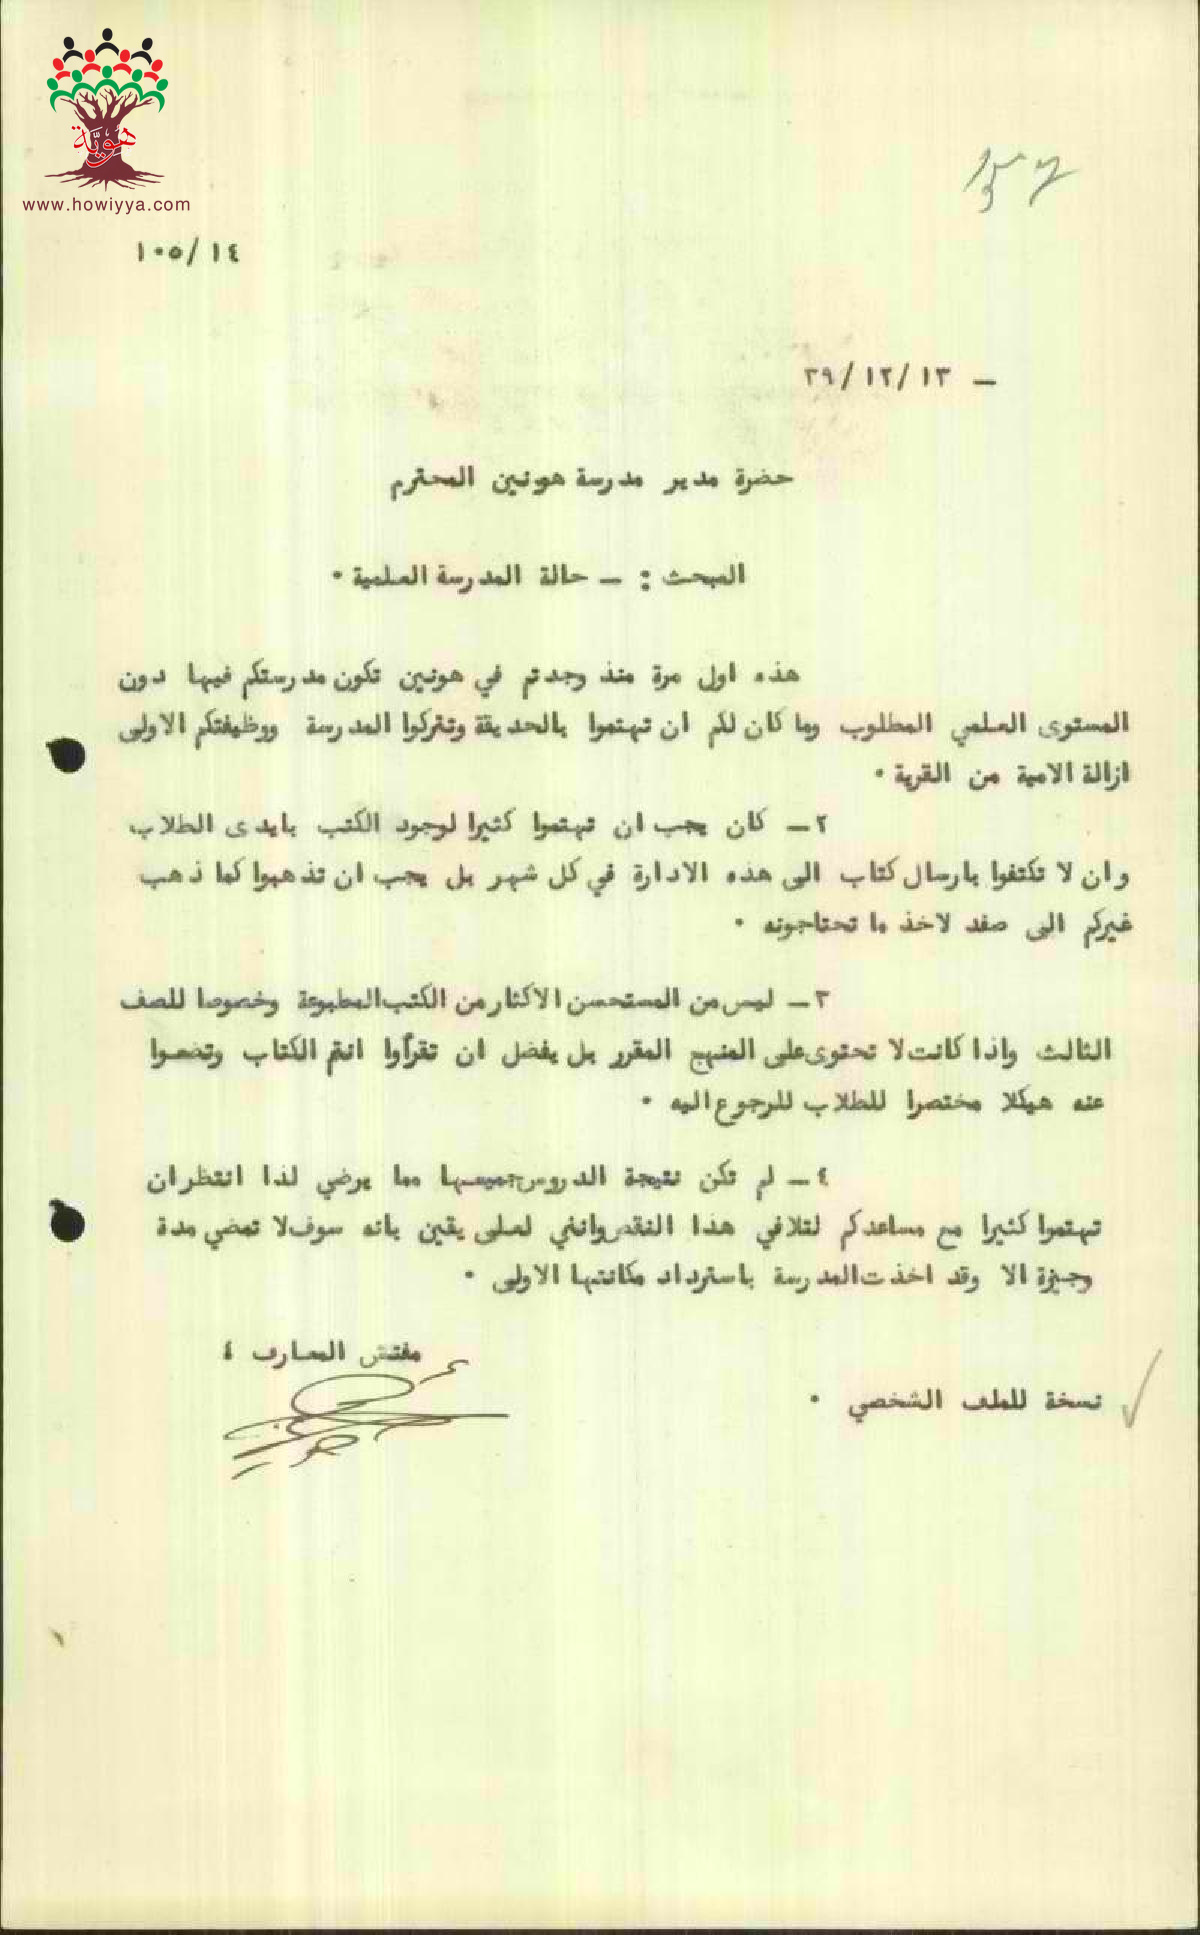 هوية
www.howiyya.com
١٠٥/١٤
٣٩/١٢/١٣ —
حضرة مدير مدرسة هونين المحترم
المبحث : — حالة المدرسة العلمية ٠
هذه اول مرة منذ وجدتم في هونين تكون مدرستكم فيها دون
المستوى العلمي المطلوب وما كان لكم ان تهتموا بالحديقة وتتركوا المدرسة ووظيفتكم الاولى
ازالة الامية من القرية ٠
٢— كان يجب ان تهتموا كثيرا لوجود الكتب بايدى الطلاب
وان لا تكتفوا بارسال كتاب الى هذه الادارة في كل شهر بل يجب ان تذهبوا كما ذهب
غيركم الى صفد لاخذ ما تحتاجونه ٠
٣— ليس من المستحسن الاكثار من الكتب المطبوعة وخصوصا للصف
الثالث واذا كانت لا تحتوى على المنهج المقرر بل يفضل ان تقرأوا انتم الكتاب وتضعوا
عنه هيكلا مختصرا للطلاب للرجوع اليه ٠
٤— لم تكن نتيجة الدروس جميعها مما يرضي لذا انتظر ان
تهتموا كثيرا مع مساعدكم لتلافي هذا النقص وانني لعلى يقين بانه سوف لا تمضي مدة
وجيزة الا وقد اخذت المدرسة باسترداد مكانتها الاولى ٠
مفتش المعارف ٤
نسخة للملف الشخصي ٠